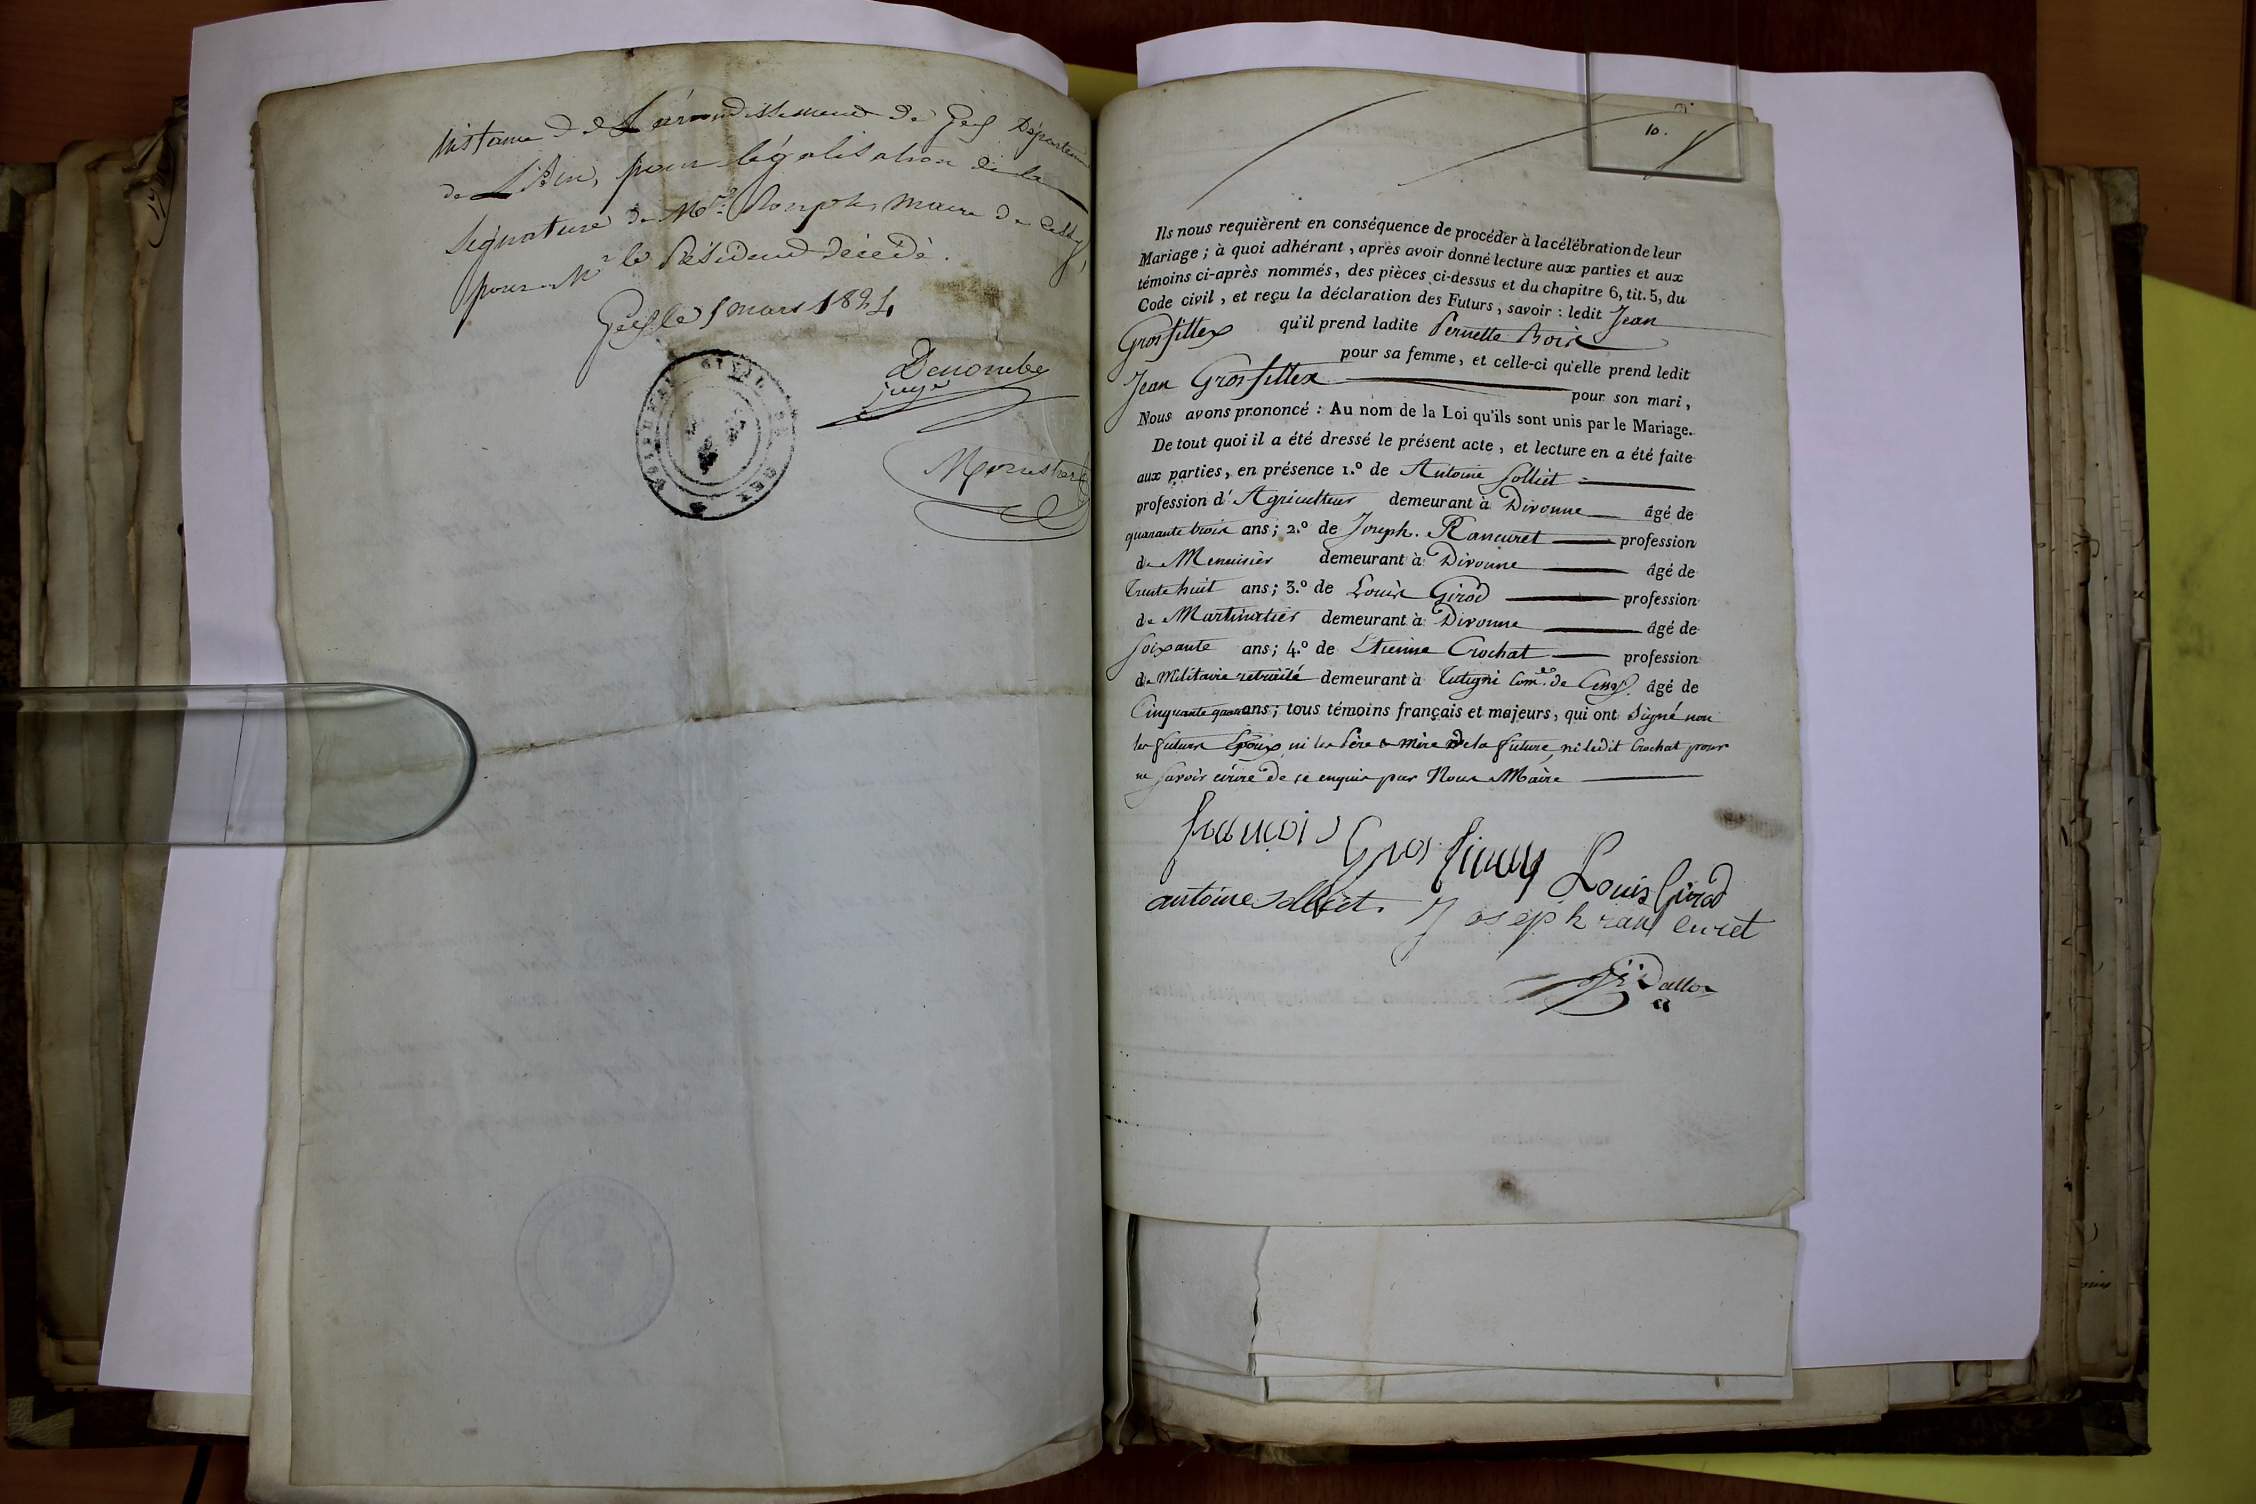 instance de L'arrondissement de Gex Départeme
de L'Ain, pour légalisation de la
signature de Mr. maire de Cessy,
pour Mr le Président décédé.
Gex le 5 mars 1824
juge
TRIBUNAL CIVIL DE GEX
10.
Ils nous requièrent en conséquence de procéder à la célébration de leur
Mariage ; à quoi adhérant, après avoir donné lecture aux parties et aux
témoins ci-après nommés, des pièces ci-dessus et du chapitre 6, tit. 5, du
Code civil, et reçu la déclaration des Futurs, savoir : ledit Jean
Grosfillex qu'il prend ladite Pernette Boix
pour sa femme, et celle-ci qu'elle prend ledit
Jean Grosfillex pour son mari,
Nous avons prononcé : Au nom de la Loi qu'ils sont unis par le Mariage.
De tout quoi il a été dressé le présent acte, et lecture en a été faite
aux parties, en présence 1.º de Antoine Solliet
profession d'Agriculteur demeurant à Divonne âgé de
quarante trois ans ; 2.º de Joseph Rancuret profession
de Menuisier demeurant à Divonne âgé de
Trente huit ans ; 3.º de Louis Girod profession
de Martinatier demeurant à Divonne âgé de
soixante ans ; 4.º de Etienne Crochat profession
de Militaire retraité demeurant à Tutigni Com.e de Cessy. âgé de
Cinquante quatre ans ; tous témoins français et majeurs, qui ont signé non
les futurs Epoux, ni les Père & Mère de la future, ni ledit Crochat pour
ne savoir écrire de ce enquis par Nous Maire
françois Grosfiley Louis Girod
antoine Solliet. Joseph rancuret
Dalloz